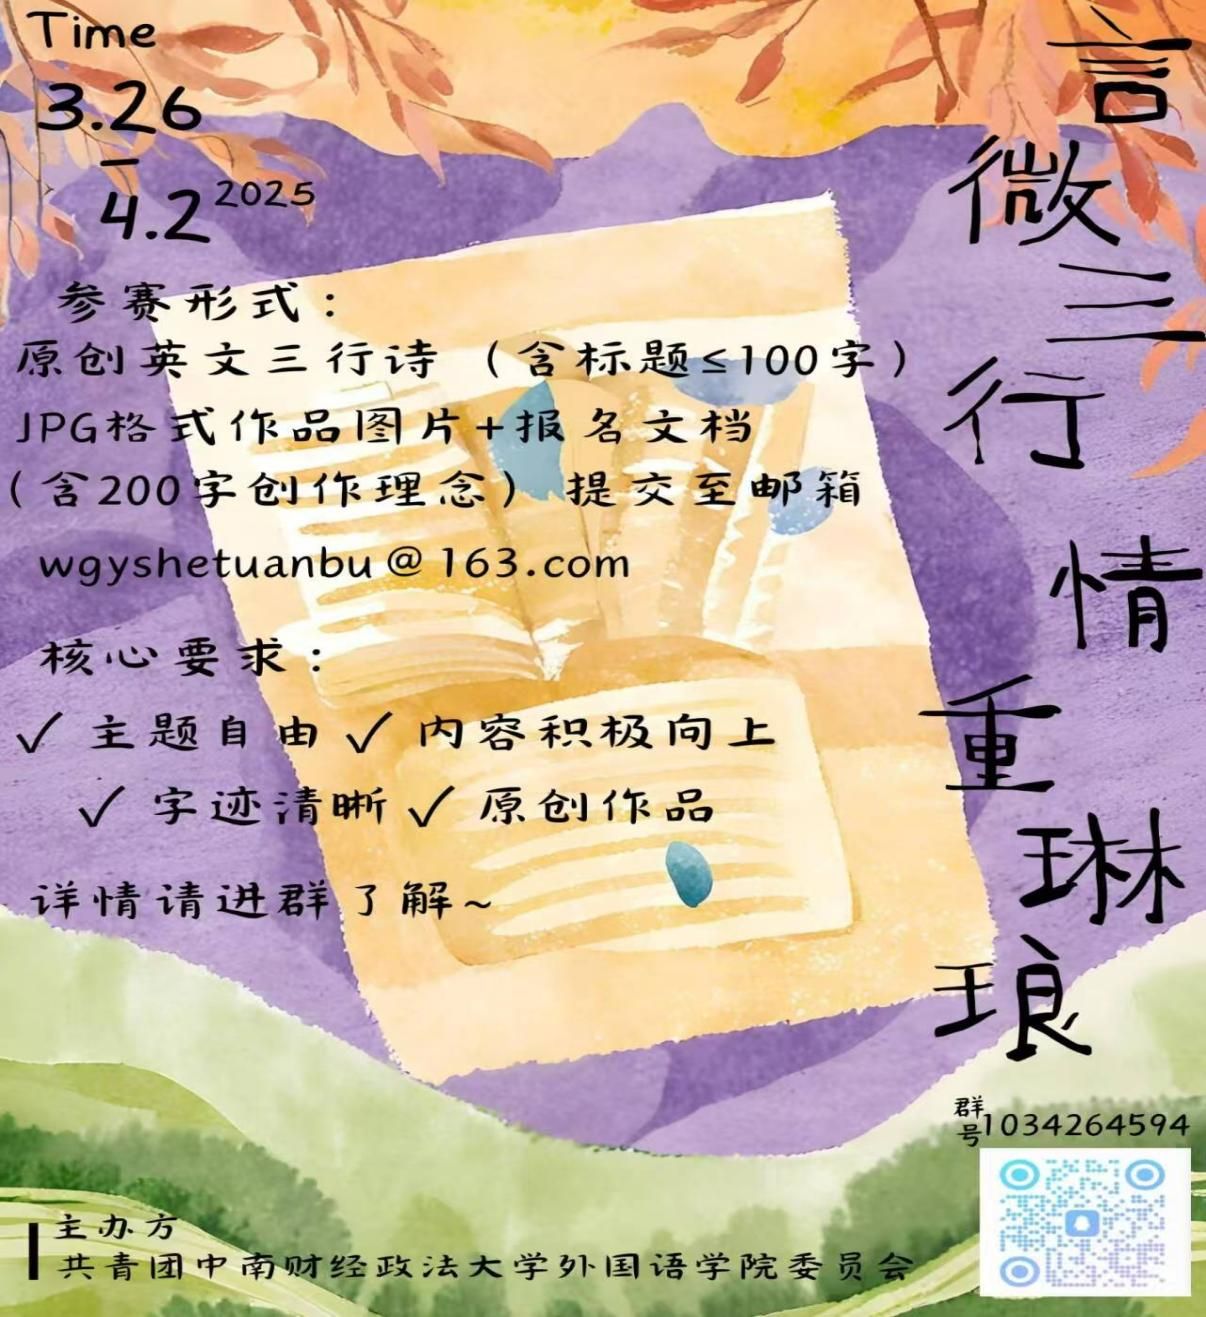 Time
3.26
–
4.2 2025
参赛形式：
原创英文三行诗（含标题≤100字）
JPG格式作品图片+报名文档
（含200字创作理念）提交至邮箱
wgyshetuanbu@163.com
核心要求：
✓ 主题自由 ✓ 内容积极向上
✓ 字迹清晰 ✓ 原创作品
详情请进群了解~
言微三行 情重琳琅
群号1034264594
主办方
共青团中南财经政法大学外国语学院委员会